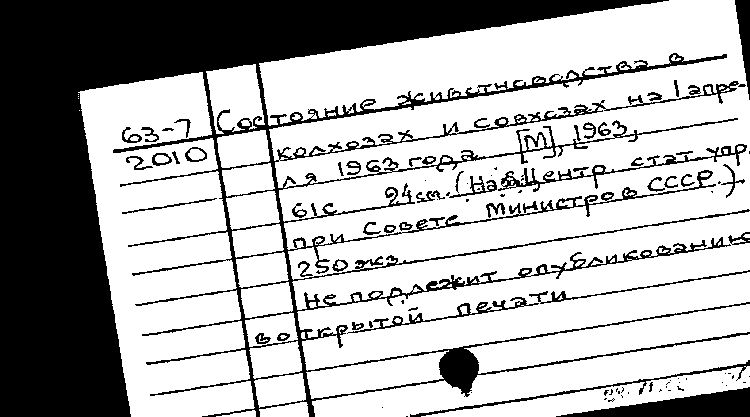 63-7 Состояние животноводства в
2010 колхозах и совхозах на 1 апре-
ля 1963 года [М], 1963,
61с. 24см. (Центр. стат. упр.
при Совете Министров СССР).
250 экз.
Не подлежит опубликованию
в открытой печати